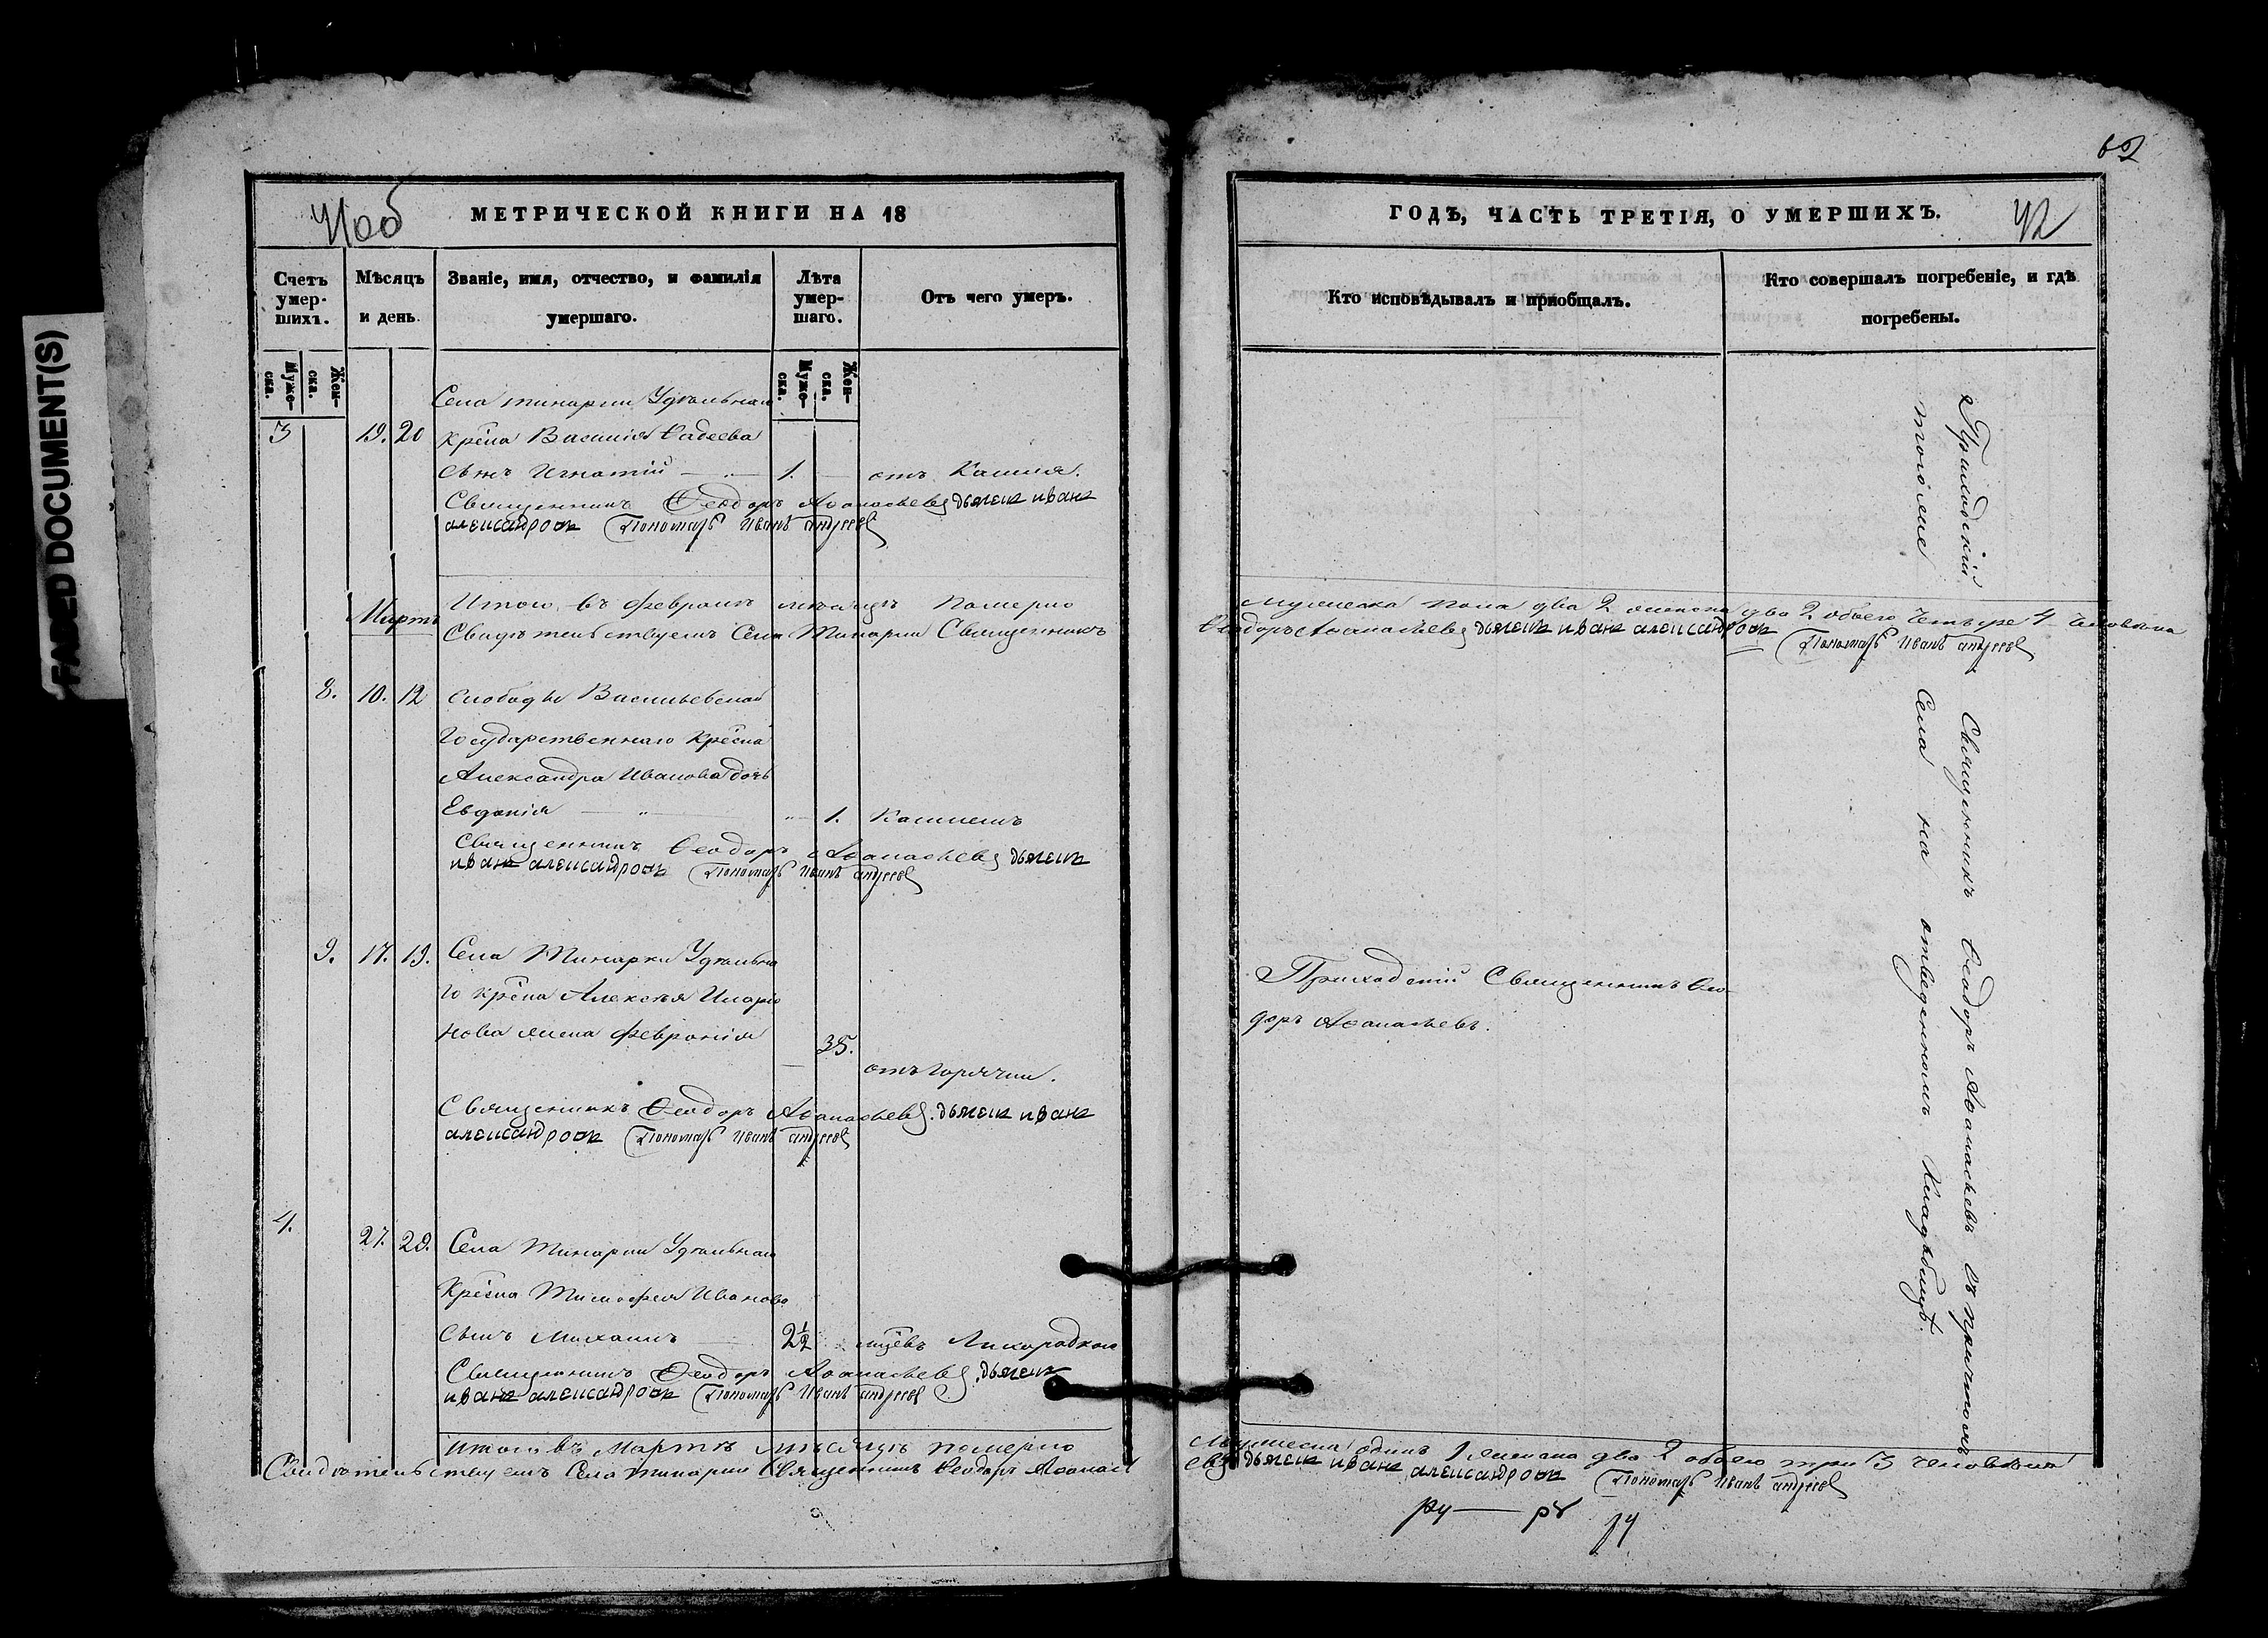 FADED DOCUMENT(S)
41об
МЕТРИЧЕСКОЙ КНИГИ НА 18
Счетъ умер-шихъ.
Мѣсяцъ и день.
Званіе, имя, отчество, и фамилія умершаго.
Лѣта умер-шаго.
Отъ чего умеръ.
Муже-ска.
Жен-ска.
Муже-ска.
Жен-ска.
Села Тинарки Удѣльнаго
3 19. 20 крес̃на Василія Фадеева
сынъ Игнатій 1. отъ Кашля.
Священникъ Ѳеодоръ Аѳанасьевъ дьячекъ иванъ
александровъ Пономарь Иванъ андреевъ
Мартъ
Итого въ февралѣ мѣсяцѣ померло
Свидѣтельствуемъ Села Тинарки Священникъ
8. 10. 12 слободы Васильевской
Государственнаго крес̃на
Александра Иванова дочь
Евдокія 1. Кашлемъ
Священникъ Ѳеодоръ Аѳанасьевъ дьячекъ
иванъ александровъ Пономарь Иванъ андреевъ
9. 17. 19. Села Тинарки Удѣльна
го крес̃на Алексѣя Иларіо
нова жена Февронія 35.
отъ горячки.
Священникъ Ѳеодоръ Аѳанасьевъ. дьячекъ иванъ
александровъ Пономарь Иванъ андреевъ
4. 27. 29. Села Тинарки Удѣльнаго
Крес̃на Тимофея Иванова
сынъ Михаилъ 2½ мц̃овъ Лихорадкою
Священникъ Ѳеодоръ Аѳанасьевъ дьячекъ
иванъ александровъ Пономарь Иванъ андреевъ
Итого въ Мартѣ мѣсяцѣ померло
Свидѣтельствуемъ Села Тинарки Священникъ Ѳеодоръ Аѳанась
62
ГОДЪ, ЧАСТЬ ТРЕТІЯ, О УМЕРШИХЪ.
42
Кто исповѣдывалъ и пріобщалъ.
Кто совершалъ погребеніе, и гдѣ погребены.
мужеска пола два 2 женска два 2 обоего четыре 4 человѣка
Ѳеодоръ Аѳанасьевъ дьячекъ иванъ александровъ Пономарь Иванъ андреевъ
Приходскій Священникъ Ѳео-
доръ Аѳанасьевъ.
Приходскій Священникъ Ѳеодоръ Аѳанасьевъ съ причтомъ
тогоже Села на отведенномъ Кладбищѣ.
мужеска одинъ 1 женска два 2 обоего три 3 человѣка
евъ дьячекъ иванъ александровъ Пономарь Иванъ андреевъ